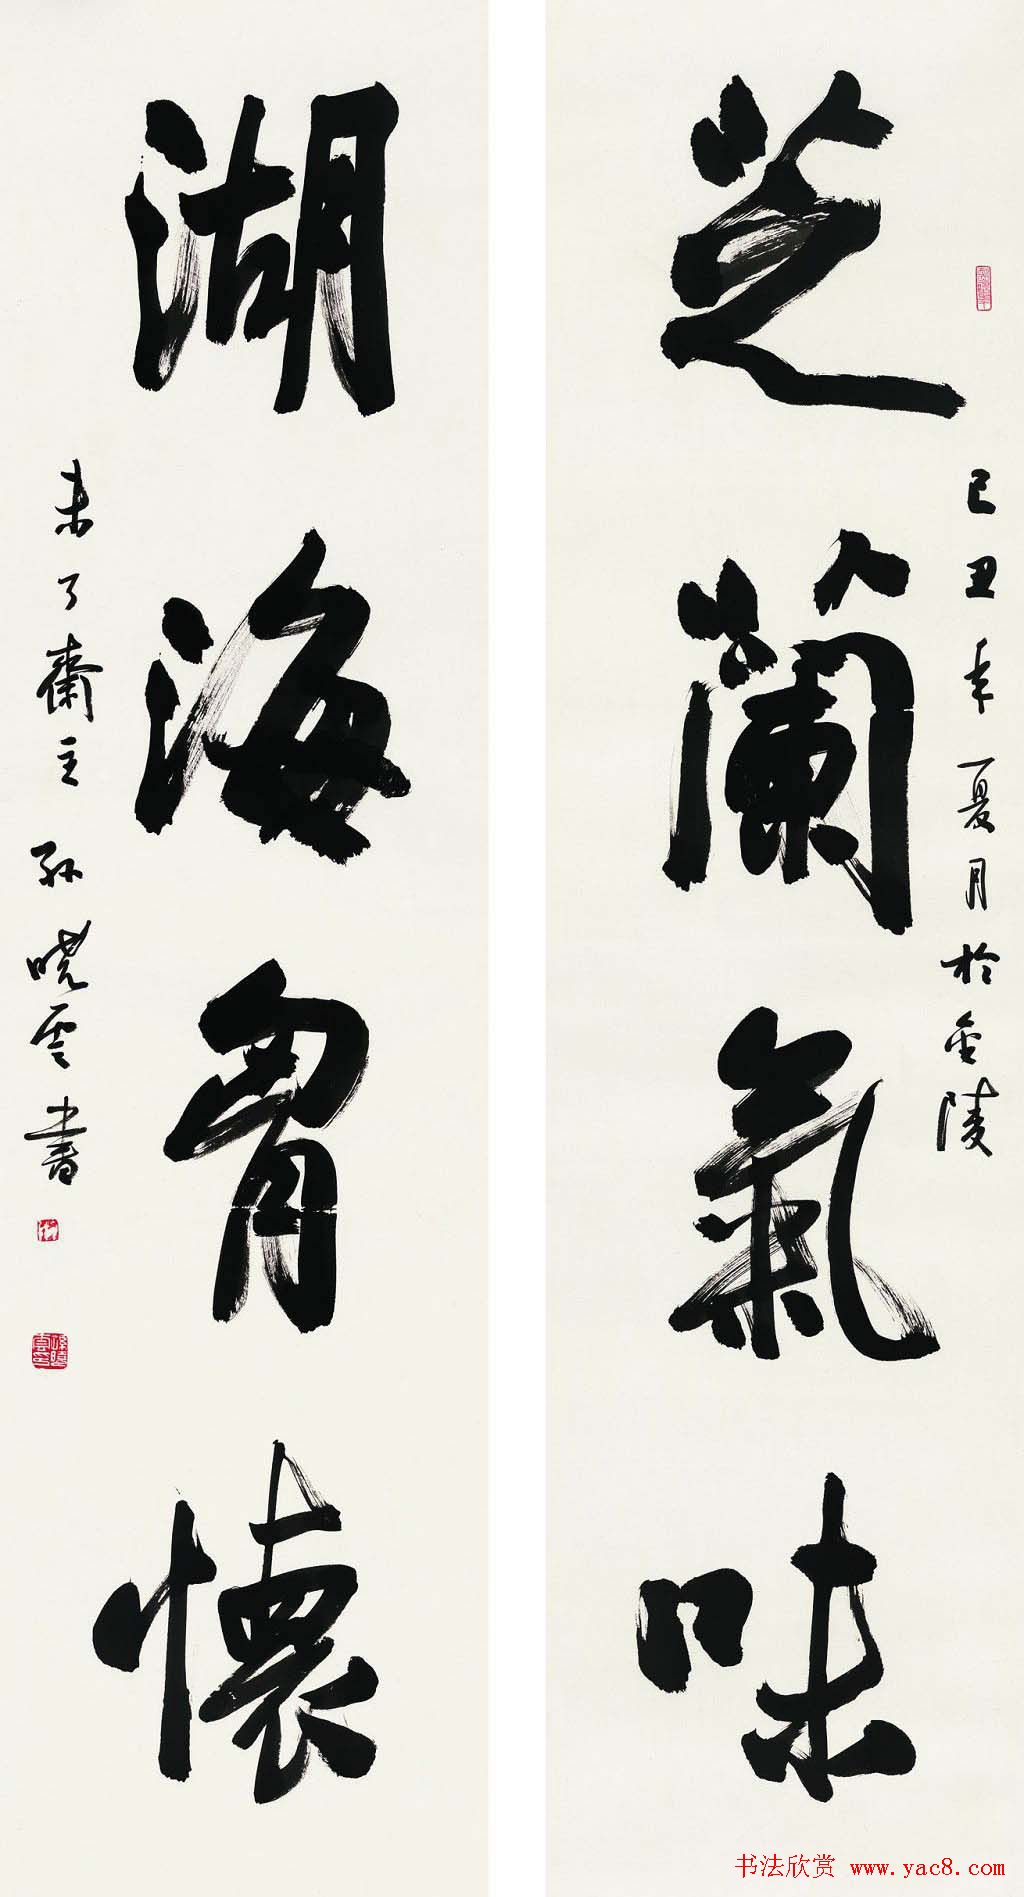 芝蘭氣味
己丑年夏月於金陵
湖海胷懷
未了齋主 孫曉雲書
书法欣赏 www.yac8.com